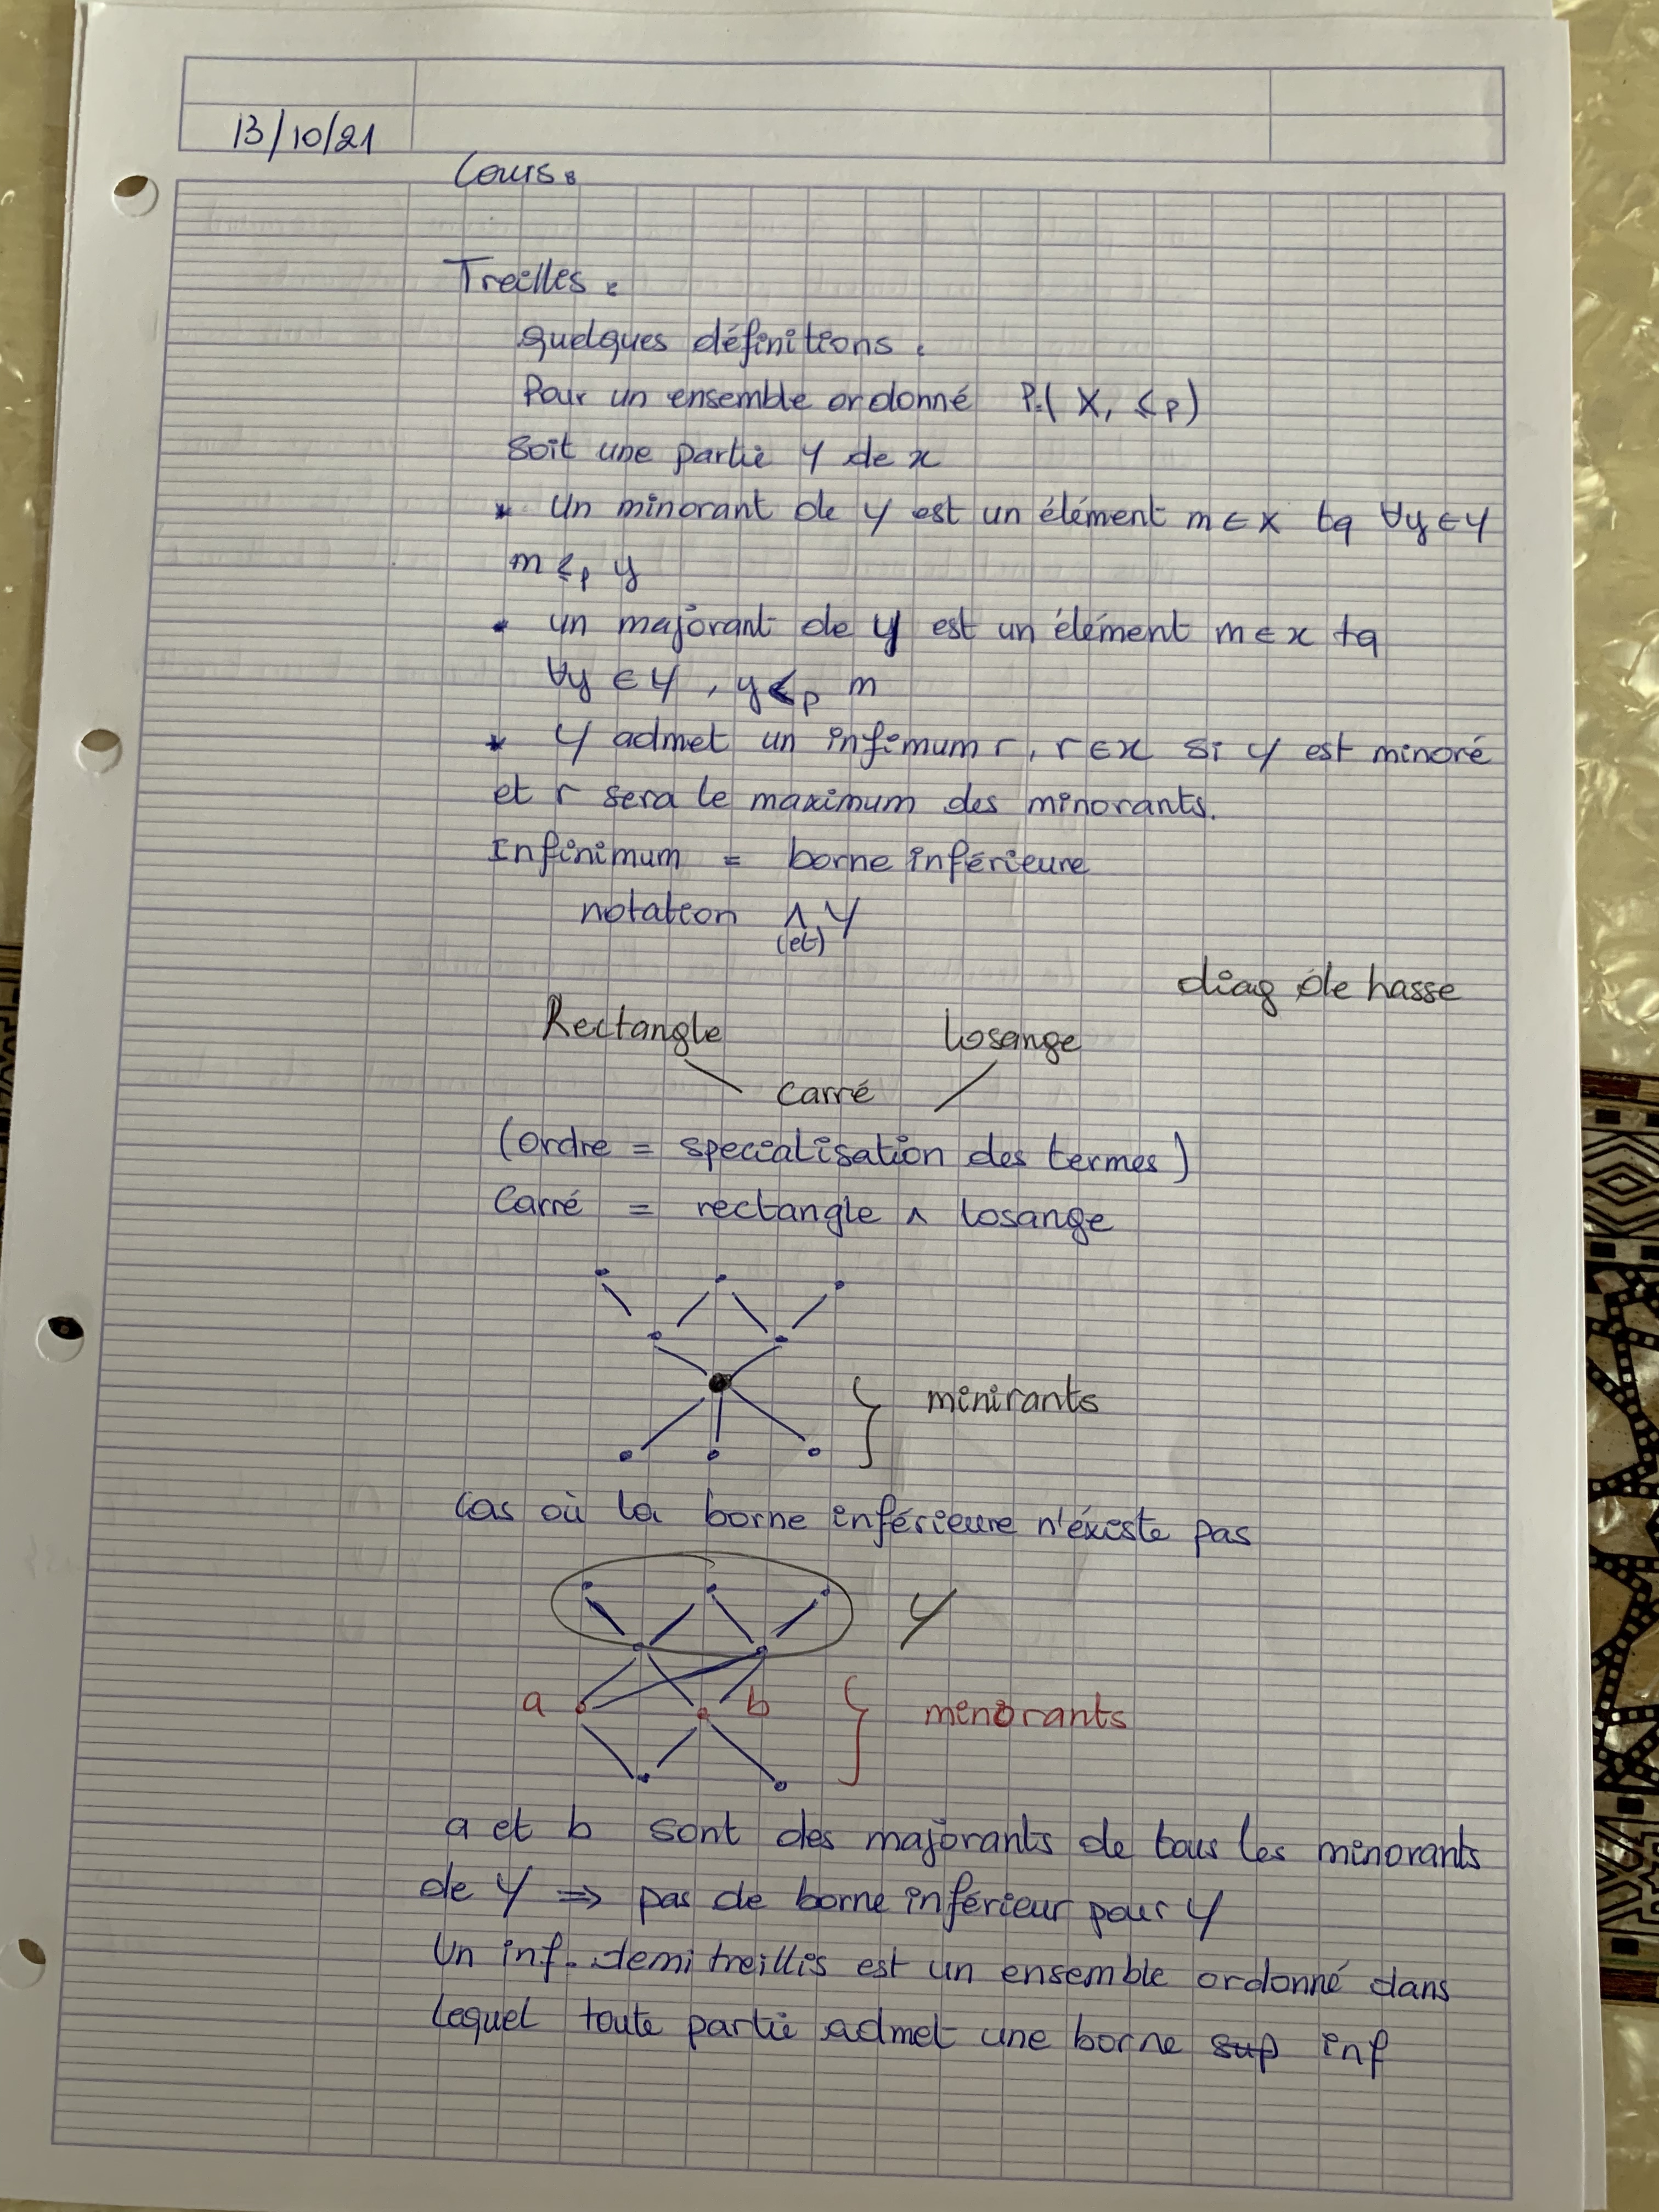 13/10/21
Cours:
Treilles:
Quelques définitions:
Pour un ensemble ordonné P=( X, ⩽p)
Soit une partie Y de x
* Un minorant de Y est un élément m ∈ X tq ∀y ∈ Y
m ⩽p y
* un majorant de Y est un élément m ∈ x tq
∀y ∈ Y , y ⩽p m
* Y admet un infimum r, r ∈ x si Y est minoré
et r sera le maximum des minorants.
Infinimum = borne inférieure
notation ∧ Y
(et)
diag de hasse
Rectangle Losange
Carré
(ordre = specialisation des termes)
Carré = rectangle ∧ losange
minirants
Cas où la borne inférieure n'éxiste pas
Y
a b minorants
a et b sont des majorants de tous les minorants
de Y ⇒ pas de borne inférieur pour Y
Un inf-demi treillis est un ensemble ordonné dans
lequel toute partie admet une borne sup inf